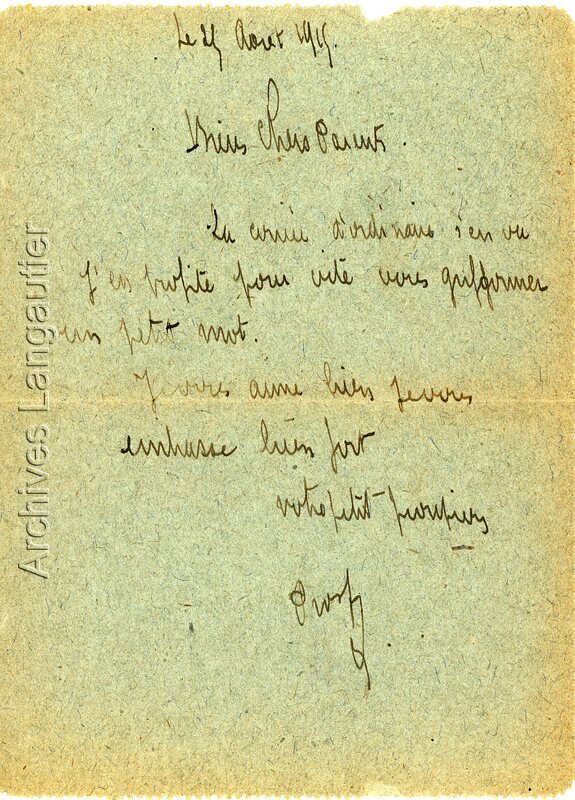 Le 25 Aout 1915.
Bien Chers Parents.
La corvée d'ordinaire s'en va
J'en profite pour vite vous griffonner
un petit mot.
Je vous aime bien je vous
embrasse bien fort
votre petit pioupiou
Archives Langauffer